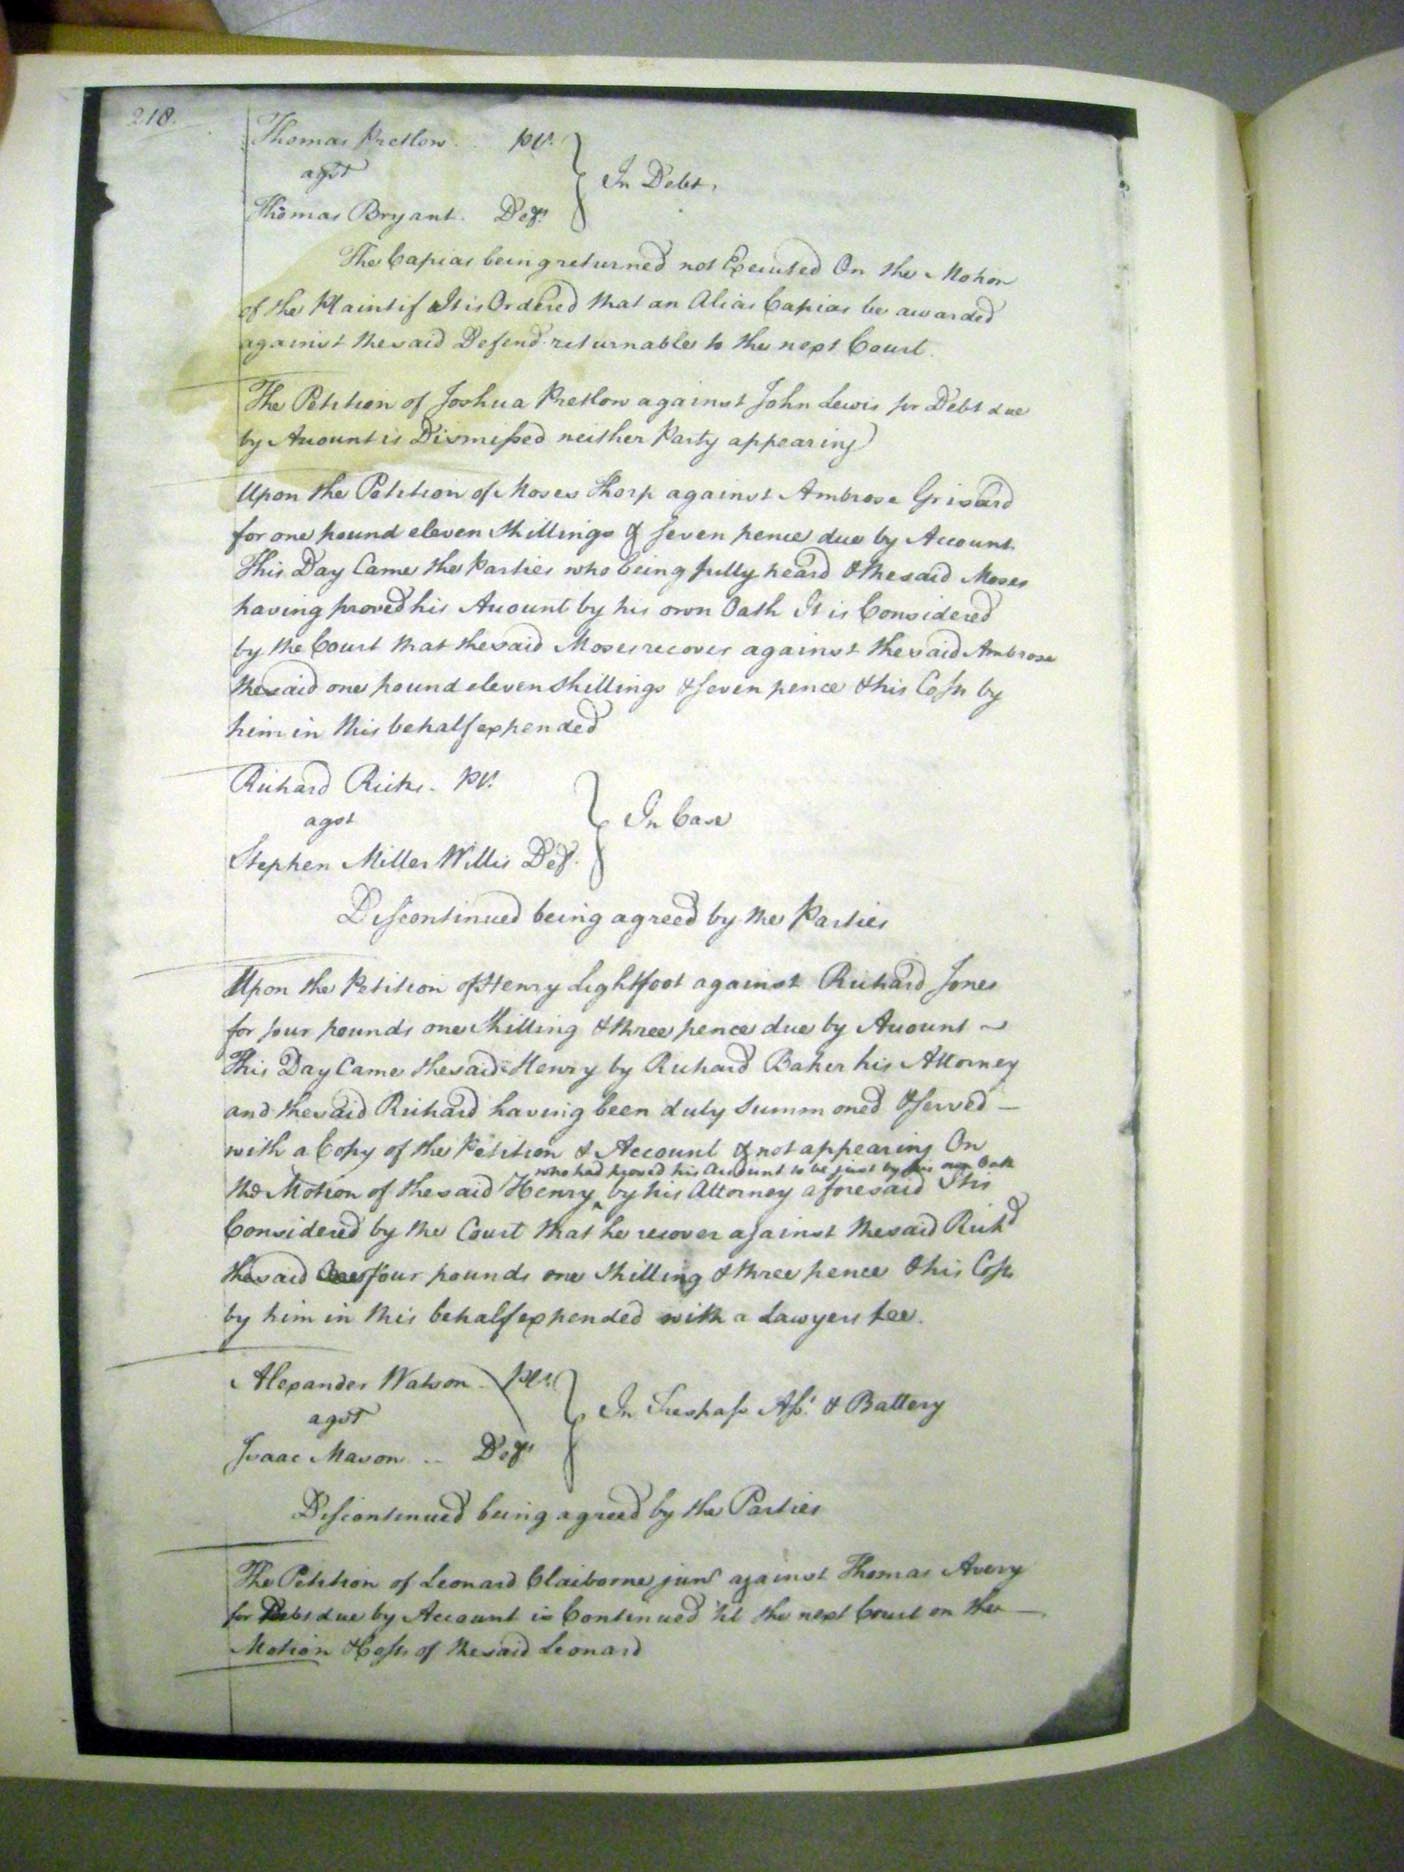 218.
Thomas Pretlow .. Plt.
agst
Thomas Bryant. Deft.
In Debt.
The Capias being returned not Executed On the Motion
of the Plaintif It is Ordered that an Alias Capias be awarded
against the said Defend. returnable to the next Court.
The Petition of Joshua Pretlow against John Lewis for Debt due
by Account is Dismissed neither Party appearing
Upon the Petition of Moses Thorp against Ambrose Grisard
for one pound eleven shillings & seven pence due by Account.
This Day Came the Parties who being fully heard & the said Moses
having proved his Account by his own Oath It is Considered
by the Court that the said Moses recover against the said Ambrose
the said one pound eleven shillings & seven pence & his Costs by
him in this behalf expended
Richard Ricks. Plt.
agst
Stephen Miller Willis Deft.
In Case
Discontinued being agreed by the Parties
Upon the Petition of Henry Lightfoot against Richard Jones
for four pounds one Shilling & three pence due by Account ~
This Day Came the said Henry by Richard Baker his Attorney
and the said Richard having been duly Summoned & served —
with a Copy of the Petition & Account & not appearing On
who had proved his Account to be just by his own Oath
the Motion of the said Henry ‸ by his Attorney aforesaid It is
Considered by the Court that he recover against the said Richd
the said four pounds one Shilling & three pence & his Costs
by him in this behalf expended with a Lawyers fee.
Alexander Watson .. Plt.
agst
Isaac Mason .. Deft
In Trespass Asst. & Battery
Discontinued being agreed by the Parties
The Petition of Leonard Claiborne junr against Thomas Avery
for Debt due by Account is Continued 'til the next Court on the —
Motion & Costs of the said Leonard